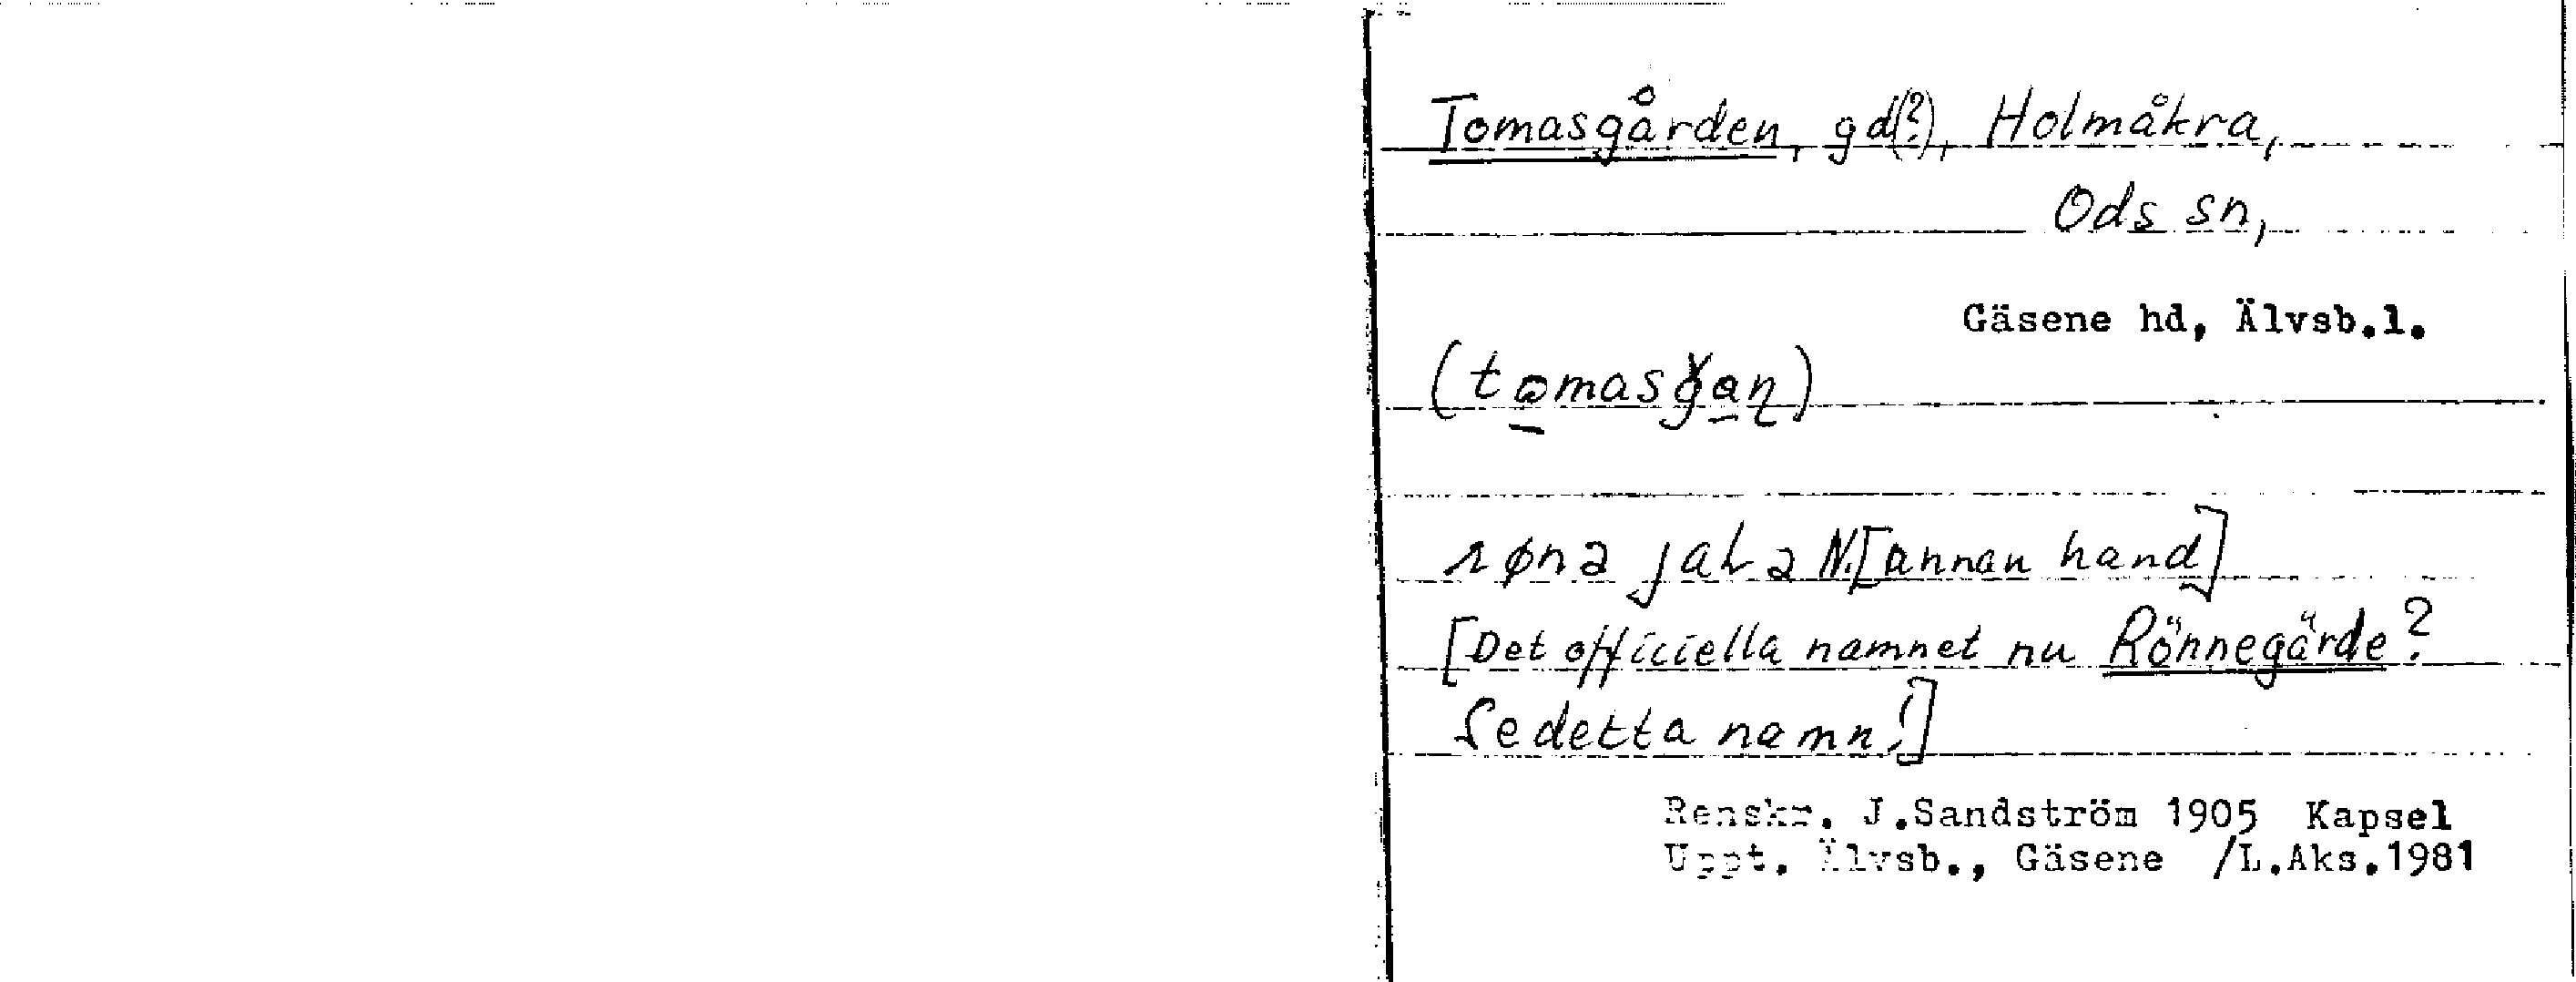 Tomasgården, gd(?), Holmåkra,
Ods sn,
Gäsene hd, Älvsb.l.
[Det officiella namnet nu Rönnegärde?
Se detta namn!]
N.[annan hand]
Renskr. J.Sandström 1905 Kapsel
Uppt. Älvsb., Gäsene /L.Aks.1981